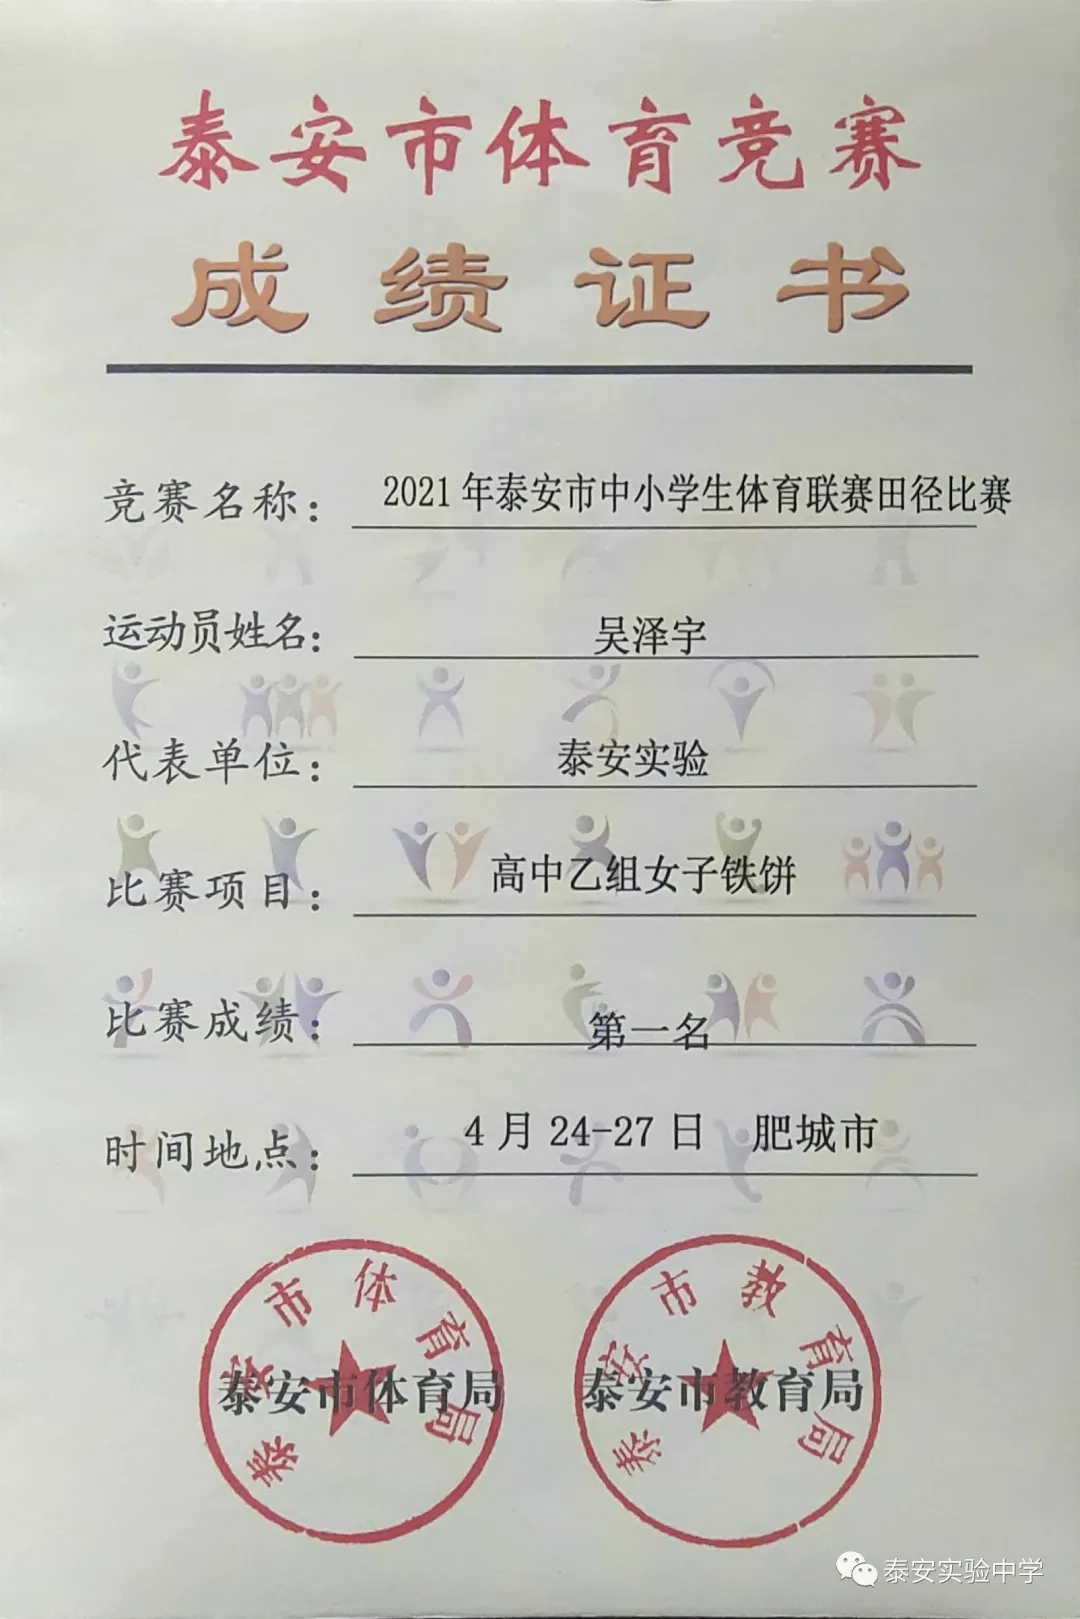 泰安市体育竞赛
成绩证书
竞赛名称： 2021年泰安市中小学生体育联赛田径比赛
运动员姓名： 吴泽宇
代表单位： 泰安实验
比赛项目： 高中乙组女子铁饼
比赛成绩： 第一名
时间地点： 4月24-27日 肥城市
泰安市体育局 泰安市教育局
泰安市体育局 泰安市教育局
泰安实验中学